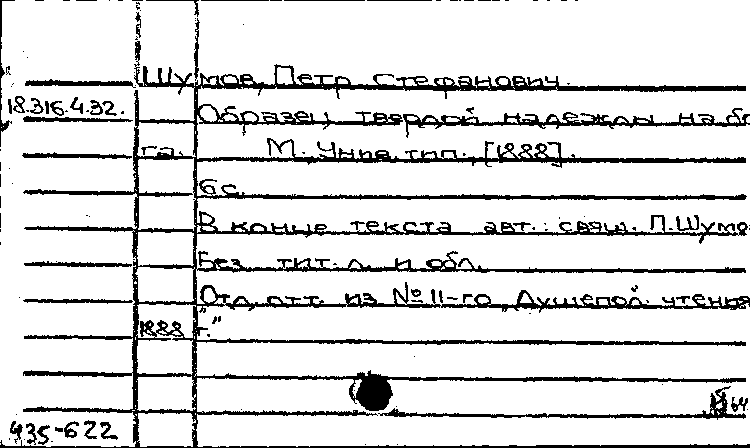 Шумов, Петр Стефанович.
18.316.4.32.
Образец твердой надежды на бо
га. М., Унив. тип., [1888].
6 с.
В конце текста авт.: свящ. П. Шумо
Без тит. л. и обл.
Отд. отт. из № 11-го „Душепол. чтения
1888 г."
64
435-622